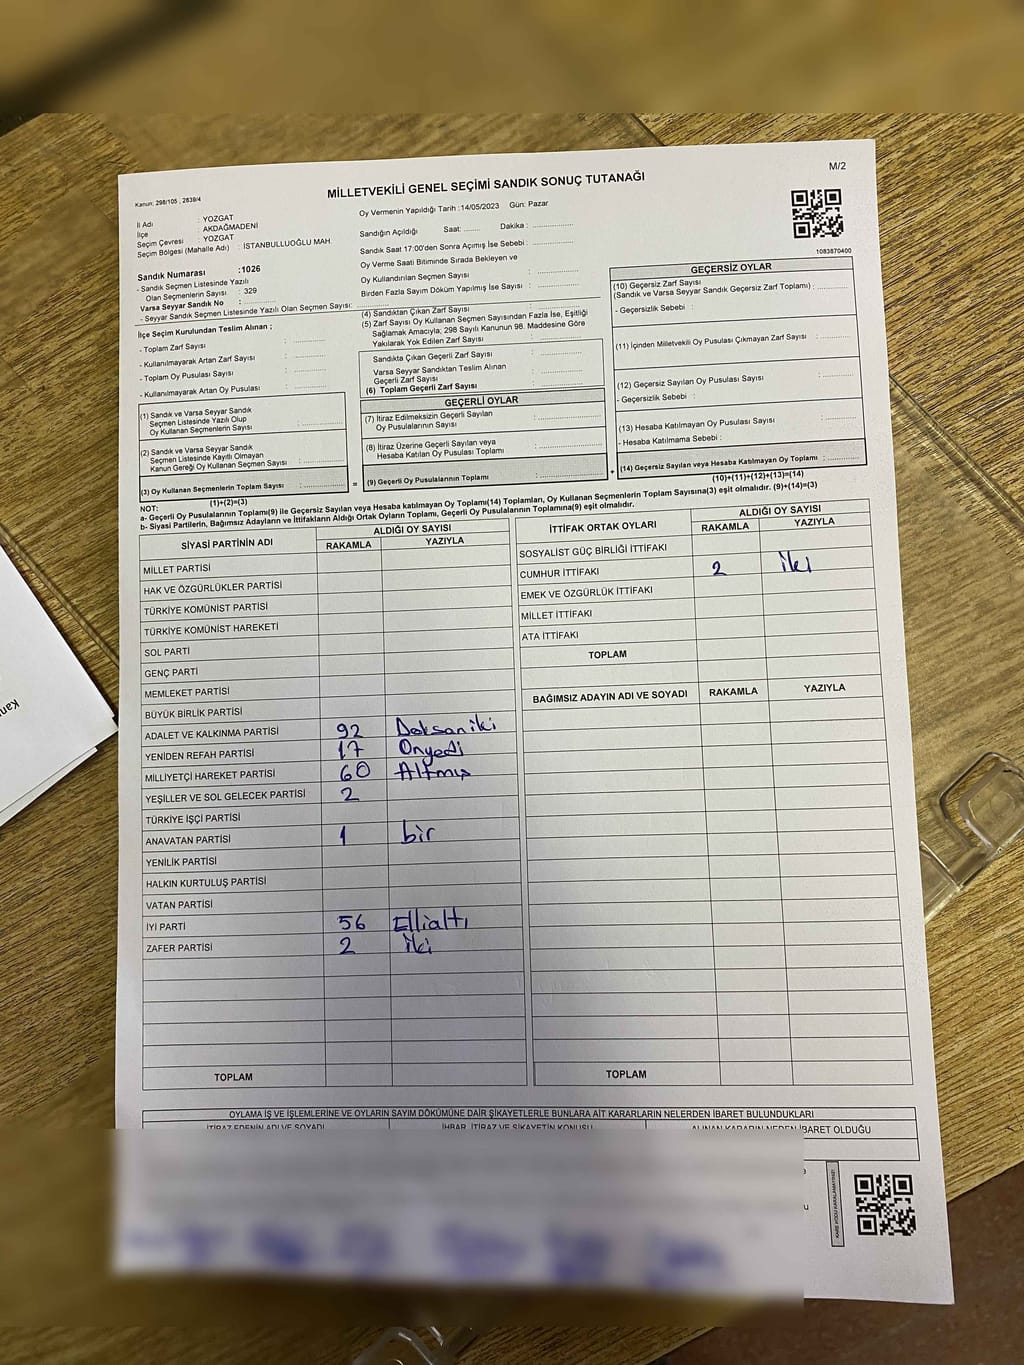 M/2
MİLLETVEKİLİ GENEL SEÇİMİ SANDIK SONUÇ TUTANAĞI
Kanun: 298/105 , 2839/4
İl Adı : YOZGAT
İlçe : AKDAĞMADENİ
Seçim Çevresi : YOZGAT
Seçim Bölgesi (Mahalle Adı) : İSTANBULLUOĞLU MAH.
Sandık Numarası :1026
- Sandık Seçmen Listesinde Yazılı
Olan Seçmenlerin Sayısı : 329
Varsa Seyyar Sandık No : ............
- Seyyar Sandık Seçmen Listesinde Yazılı Olan Seçmen Sayısı: ............
İlçe Seçim Kurulundan Teslim Alınan ;
- Toplam Zarf Sayısı : ............
- Kullanılmayarak Artan Zarf Sayısı : ............
- Toplam Oy Pusulası Sayısı : ............
- Kullanılmayarak Artan Oy Pusulası : ............
(1) Sandık ve Varsa Seyyar Sandık
Seçmen Listesinde Yazılı Olup
Oy Kullanan Seçmenlerin Sayısı : ............
(2) Sandık ve Varsa Seyyar Sandık
Seçmen Listesinde Kayıtlı Olmayan
Kanun Gereği Oy Kullanan Seçmen Sayısı : ............
(3) Oy Kullanan Seçmenlerin Toplam Sayısı : ............
(1)+(2)=(3)
Oy Vermenin Yapıldığı Tarih :14/05/2023 Gün: Pazar
Sandığın Açıldığı Saat: ........ Dakika : ............
Sandık Saat 17:00'den Sonra Açımış İse Sebebi : ............
Oy Verme Saati Bitiminde Sırada Bekleyen ve
Oy Kullandırılan Seçmen Sayısı : ............
Birden Fazla Sayım Döküm Yapılmış İse Sayısı : ............
(4) Sandıktan Çıkan Zarf Sayısı
(5) Zarf Sayısı Oy Kullanan Seçmen Sayısından Fazla İse, Eşitliği
Sağlamak Amacıyla; 298 Sayılı Kanunun 98. Maddesine Göre
Yakılarak Yok Edilen Zarf Sayısı
Sandıkta Çıkan Geçerli Zarf Sayısı : ............
Varsa Seyyar Sandıktan Teslim Alınan
Geçerli Zarf Sayısı : ............
(6) Toplam Geçerli Zarf Sayısı
GEÇERLİ OYLAR
(7) İtiraz Edilmeksizin Geçerli Sayılan
Oy Pusulalarının Sayısı : ............
(8) İtiraz Üzerine Geçerli Sayılan veya
Hesaba Katılan Oy Pusulası Toplamı : ............
= (9) Geçerli Oy Pusulalarının Toplamı : ............ +
1083870400
GEÇERSİZ OYLAR
(10) Geçersiz Zarf Sayısı
(Sandık ve Varsa Seyyar Sandık Geçersiz Zarf Toplamı) : ............
- Geçersizlik Sebebi :
(11) İçinden Milletvekili Oy Pusulası Çıkmayan Zarf Sayısı : ............
(12) Geçersiz Sayılan Oy Pusulası Sayısı : ............
- Geçersizlik Sebebi :
(13) Hesaba Katılmayan Oy Pusulası Sayısı : ............
- Hesaba Katılmama Sebebi :
(14) Geçersiz Sayılan veya Hesaba Katılmayan Oy Toplamı : ............
(10)+(11)+(12)+(13)=(14)
NOT:
a- Geçerli Oy Pusulalarının Toplamı(9) ile Geçersiz Sayılan veya Hesaba katılmayan Oy Toplamı(14) Toplamları, Oy Kullanan Seçmenlerin Toplam Sayısına(3) eşit olmalıdır. (9)+(14)=(3)
b- Siyasi Partilerin, Bağımsız Adayların ve İttifakların Aldığı Ortak Oyların Toplamı, Geçerli Oy Pusulalarının Toplamına(9) eşit olmalıdır.
SİYASİ PARTİNİN ADI ALDIĞI OY SAYISI
RAKAMLA YAZIYLA
MİLLET PARTİSİ
HAK VE ÖZGÜRLÜKLER PARTİSİ
TÜRKİYE KOMÜNİST PARTİSİ
TÜRKİYE KOMÜNİST HAREKETİ
SOL PARTİ
GENÇ PARTİ
MEMLEKET PARTİSİ
BÜYÜK BİRLİK PARTİSİ
ADALET VE KALKINMA PARTİSİ 92 Doksaniki
YENİDEN REFAH PARTİSİ 17 Onyedi
MİLLİYETÇİ HAREKET PARTİSİ 60 Altmış
YEŞİLLER VE SOL GELECEK PARTİSİ 2
TÜRKİYE İŞÇİ PARTİSİ
ANAVATAN PARTİSİ 1 bir
YENİLİK PARTİSİ
HALKIN KURTULUŞ PARTİSİ
VATAN PARTİSİ
İYİ PARTİ 56 Ellialtı
ZAFER PARTİSİ 2 iki
TOPLAM
İTTİFAK ORTAK OYLARI ALDIĞI OY SAYISI
RAKAMLA YAZIYLA
SOSYALİST GÜÇ BİRLİĞİ İTTİFAKI
CUMHUR İTTİFAKI 2 iki
EMEK VE ÖZGÜRLÜK İTTİFAKI
MİLLET İTTİFAKI
ATA İTTİFAKI
TOPLAM
BAĞIMSIZ ADAYIN ADI VE SOYADI RAKAMLA YAZIYLA
TOPLAM
OYLAMA İŞ VE İŞLEMLERİNE VE OYLARIN SAYIM DÖKÜMÜNE DAİR ŞİKAYETLERLE BUNLARA AİT KARARLARIN NELERDEN İBARET BULUNDUKLARI
İTİRAZ EDENİN ADI VE SOYADI İHBAR, İTİRAZ VE ŞİKAYETİN KONUSU ALINAN KARARIN NEDEN İBARET OLDUĞU
KARE KODU KARALAMAYINIZ!
Kanu